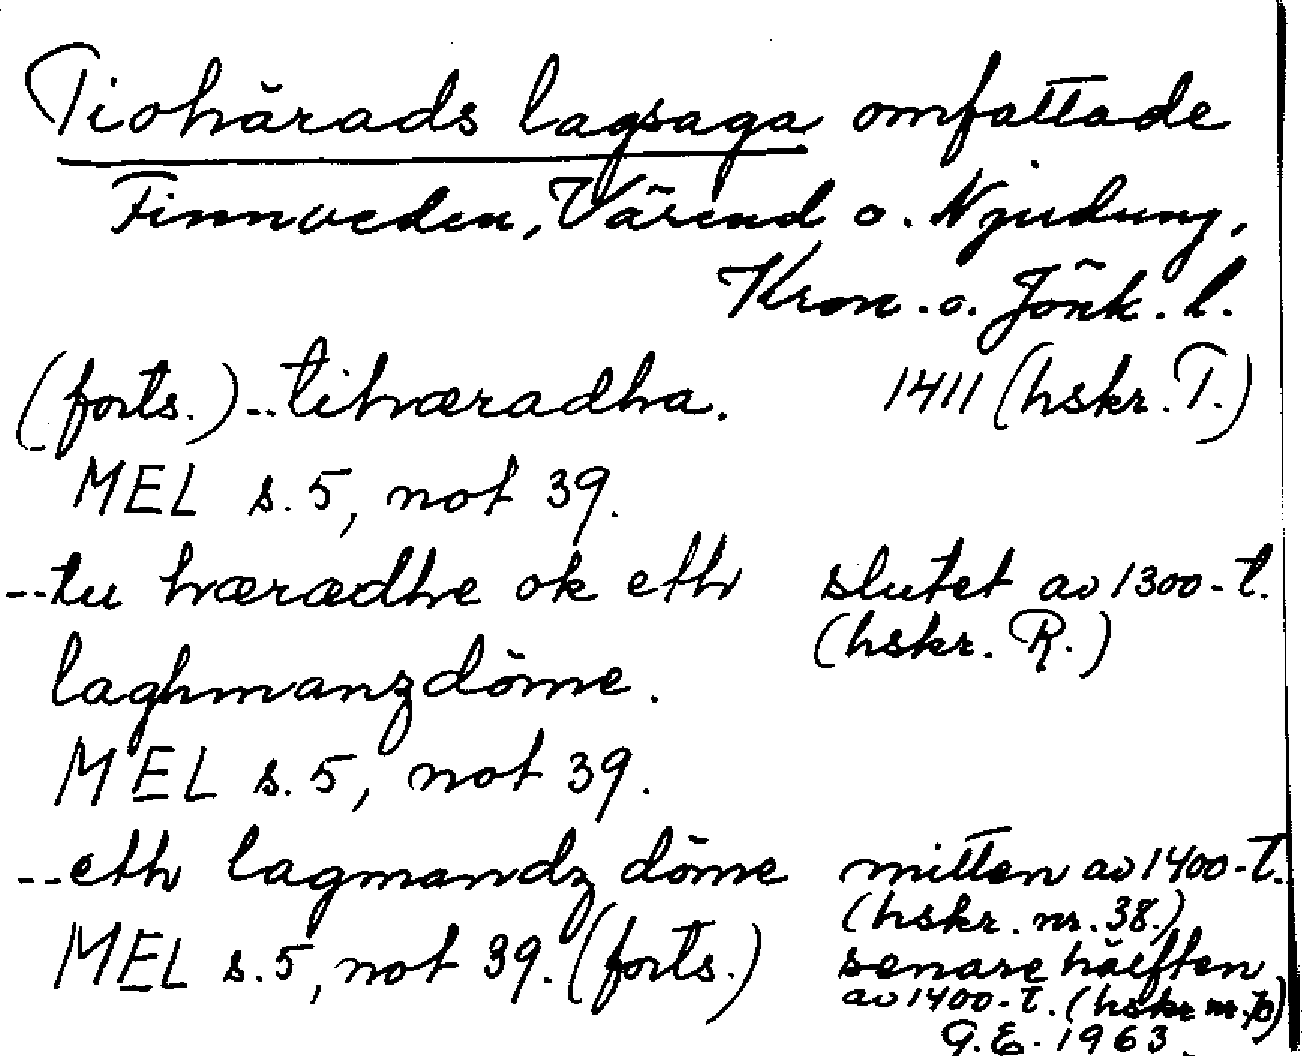 Tiohärads lagsaga omfattade
Finnveden, Värend o. Njudung,
Kron. o. Jönk. l.
(forts.) -- tihæradha. 1411 (hskr. T.)
MEL s. 5, not 39.
-- tu hærædhe ok eth slutet av 1300-t.
(hskr. R.)
laghmanzdöme.
MEL s. 5, not 39.
-- eth lagmandz döme mitten av 1400-t.
(hskr. nr. 38.)
MEL s. 5, not 39. (forts.) senare hälften
av 1400-t. (hskr nr.
G. E. 1963.